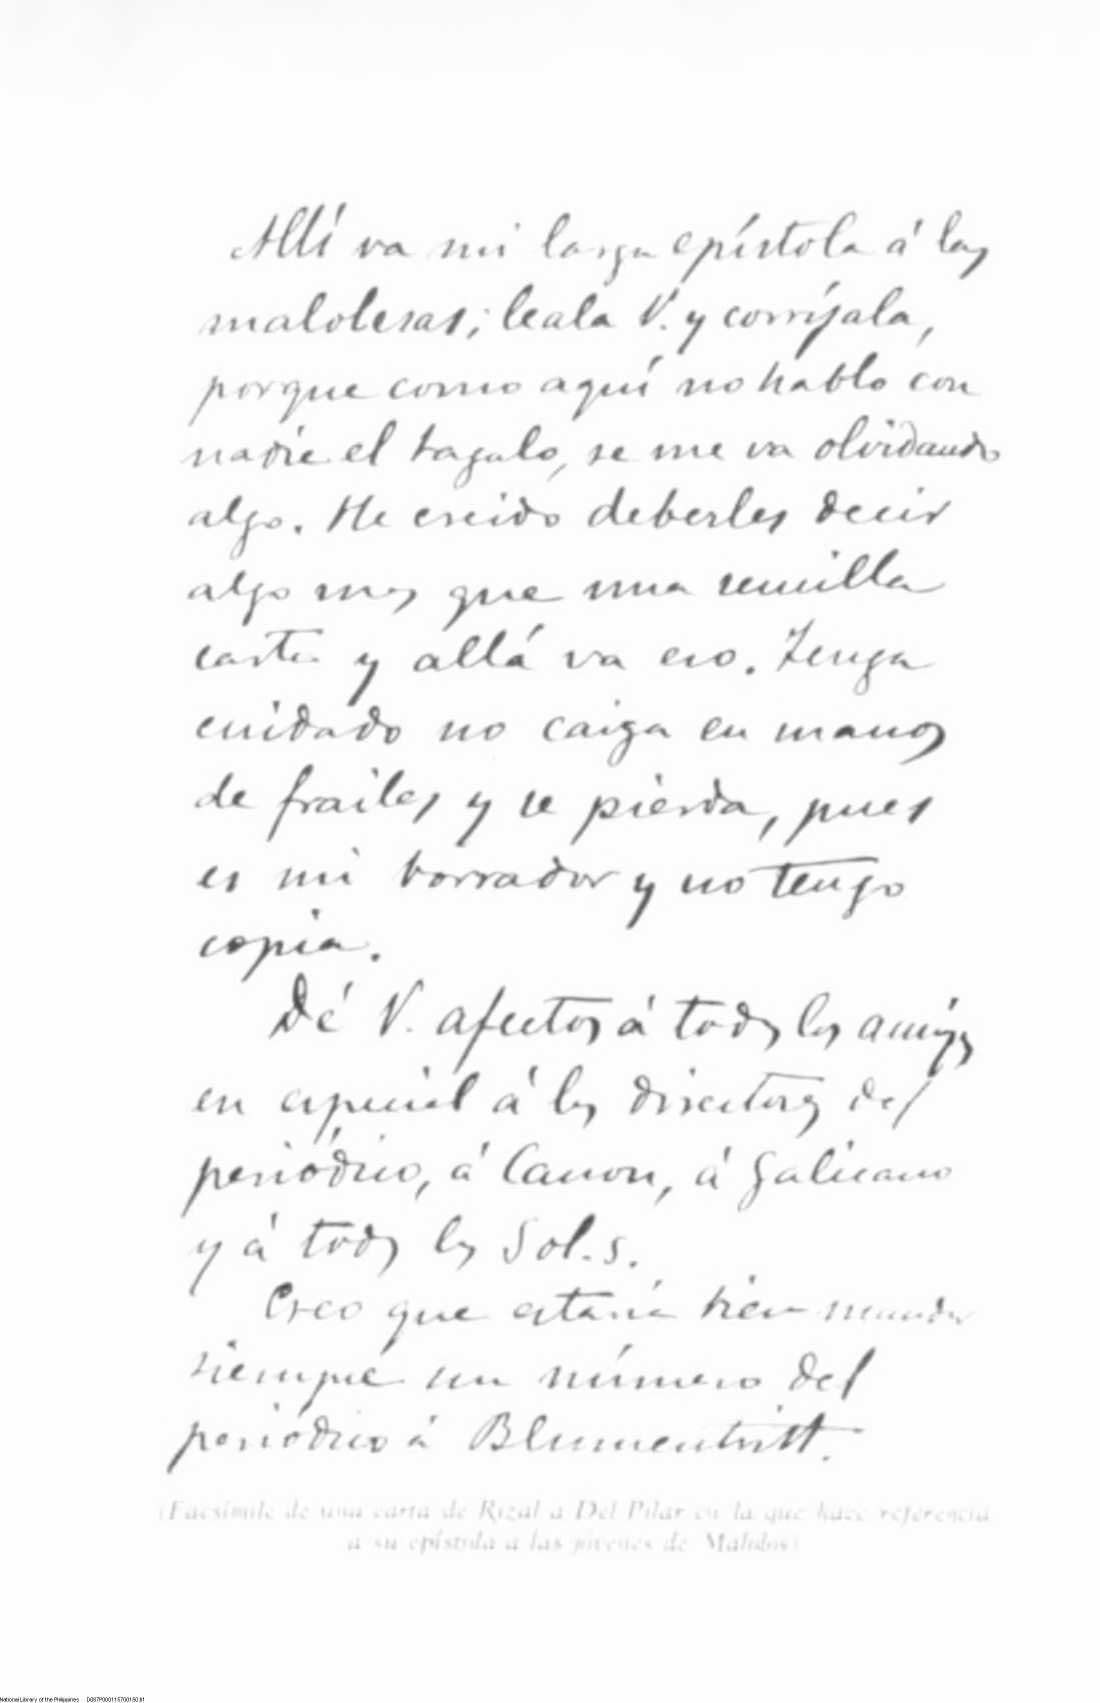 Allí va mi larga epístola á las
malolesas; leala V. y corríjala,
porque como aquí no hablo con
nadie el tagalo, se me va olvidando
algo. He creido deberles decir
algo mas que una sencilla
carta y allá va eso. Tenga
cuidado no caiga en manos
de frailes y se pierda, pues
es mi borrador y no tengo
copia.
Dé V. afectos á todos los amigos
en especial á los directores del
periódico, á Canon, á Galicano
y á todos los Sol.s.
Creo que estaría bien mandar
siempre un número del
periódico á Blumentritt.
(Facsímile de una carta de Rizal a Del Pilar en la que hace referencia
a su epístola a las jóvenes de Malolos)
National Library of the Philippines D087P000115700150.tif